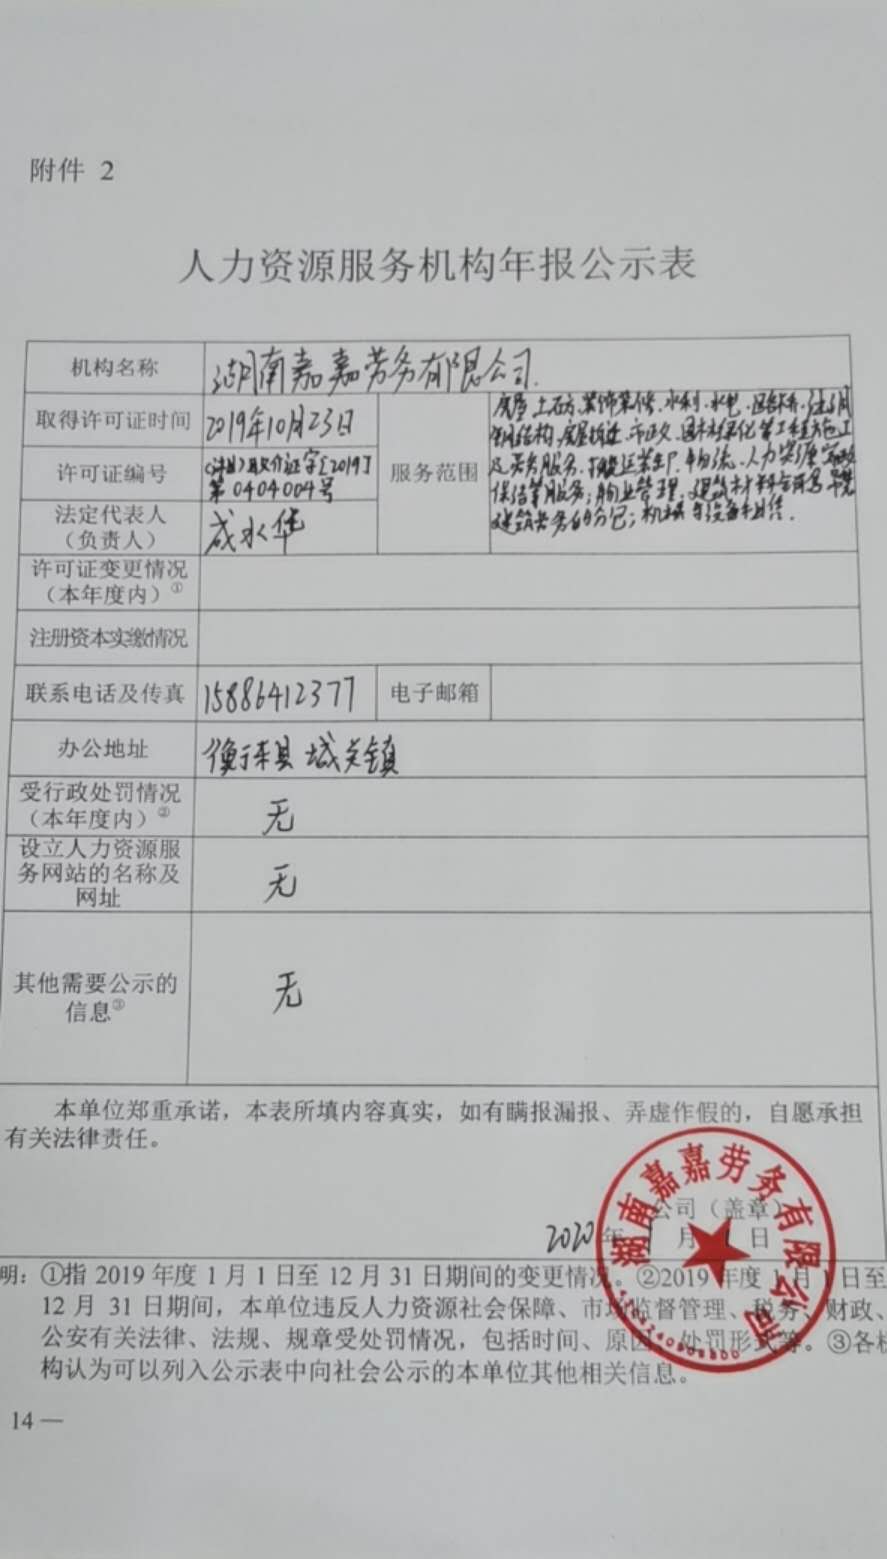 附件 2
人力资源服务机构年报公示表
机构名称
湖南嘉嘉劳务有限公司.
取得许可证时间
2019年10月23日
许可证编号
证字[2019]
第0404004号
法定代表人
（负责人）
成水华
服务范围
房屋、土石方、装饰装修、水利、水电、
钢结构、市政、园林绿化等工程施工
及劳务服务、物流、人力资源
保洁等服务；物业管理、建筑材料
建筑劳务分包；机械与设备租赁.
许可证变更情况
（本年度内）①
注册资本实缴情况
联系电话及传真
15886412377
电子邮箱
办公地址
衡东县城关镇
受行政处罚情况
（本年度内）②
无
设立人力资源服
务网站的名称及
网址
无
其他需要公示的
信息③
无
本单位郑重承诺，本表所填内容真实，如有瞒报漏报、弄虚作假的，自愿承担
有关法律责任。
湖南嘉嘉劳务有限公司
公司（盖章）
2020年 月 日
明：①指 2019 年度 1 月 1 日至 12 月 31 日期间的变更情况。②2019 年度 1 月 1 日至
12 月 31 日期间，本单位违反人力资源社会保障、市场监督管理、税务、财政、
公安有关法律、法规、规章受处罚情况，包括时间、原因、处罚形式等。③各机
构认为可以列入公示表中向社会公示的本单位其他相关信息。
14 —